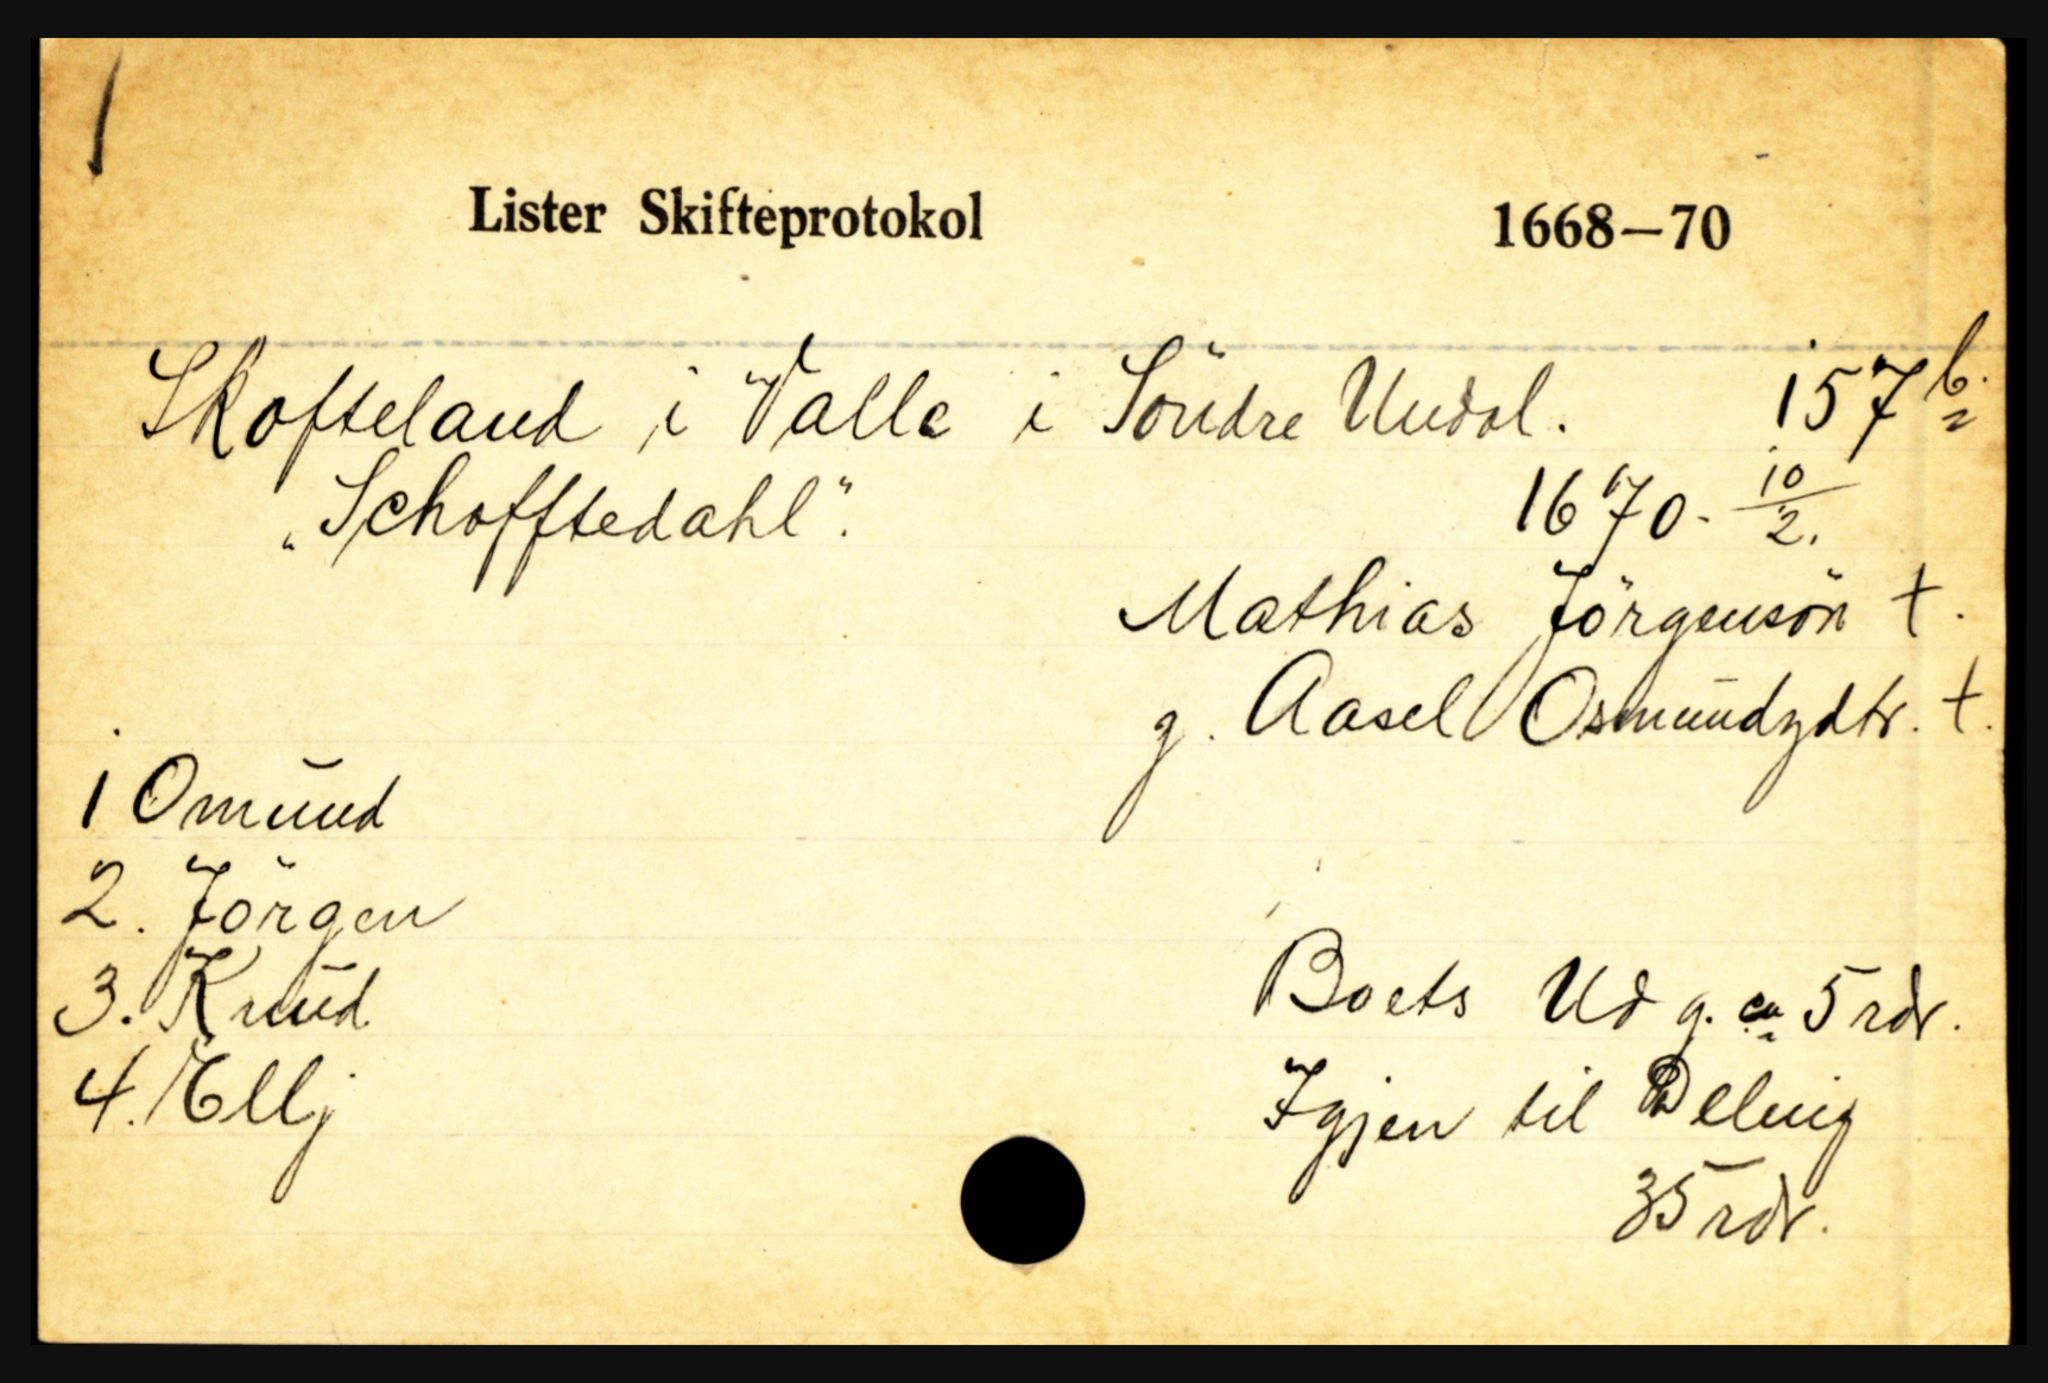 Lister Skifteprotokol 1668—70
Skofteland i Valle i Söndre Undal. 157 b.
"Schofftedahl". 1670. 10/2.
Mathias Jörgensön †.
g. Aasel Osmundzdtr. †.
1 Omund
2. Jörgen
3. Knud
4. Ellj
Boets Ud g. ca 5 rdr.
Igjen til Delnig
35 rdr.